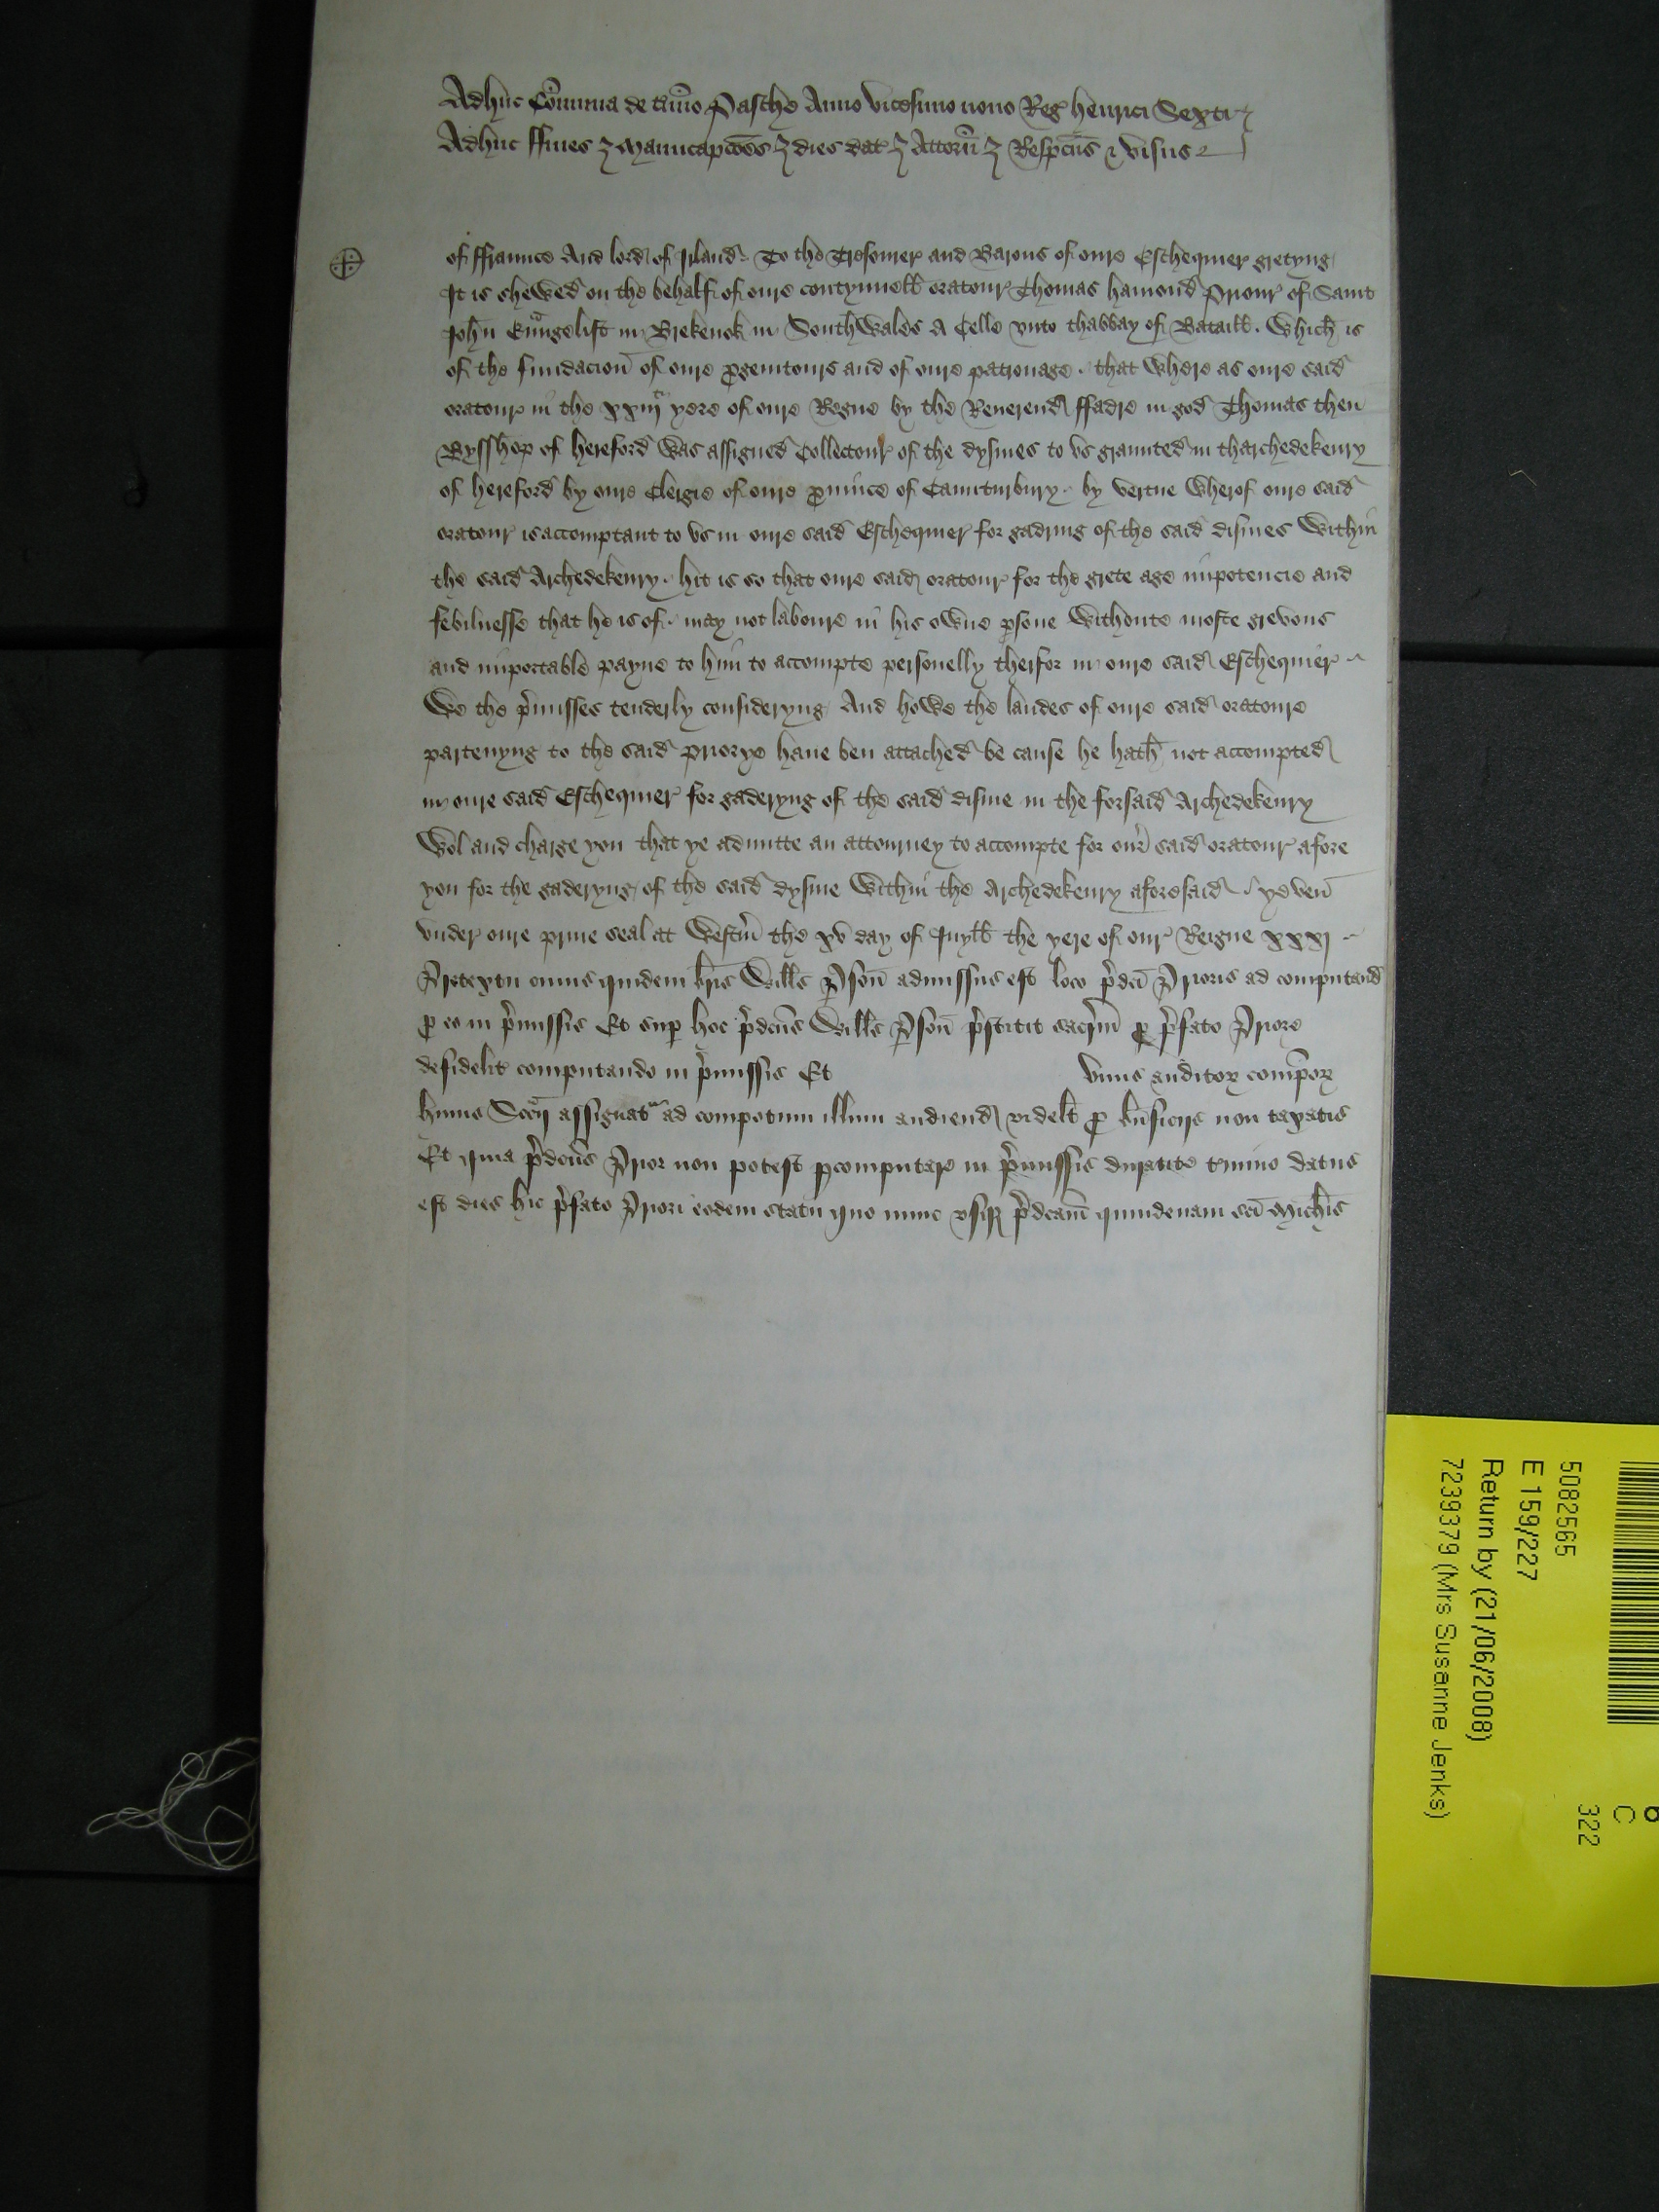 Adhuc Cōmunia de tm̄io Pasche Anno vicesimo nono Reg̕ henrici Sexti
Adhuc ffines ⁊ Manucapcōēs ⁊ dies dat̕ ⁊ Attorn̄ ⁊ Respc̄us ⁊ visus
of ffraunce And lord of Irland To the Tresourer and Barons of oure Eschequier gretyng
It is shewed on the behalf of oure contynuell oratour Thomas hamond Priour of Saint
John Euangelist in Brekenok in Southwales A Celle vnto thabbay of Bataill . Which is
of the fundacion̄ of oure ꝓgenitours and of oure patronage . that where as oure said
oratour in the yere of oure Regne by the Reuerend ffadre in god Thomas then
Bysshop of hereford was assigned Collectour of the dysmes to vs graunted in tharchedekenry
of hereford by oure Clergie of oure ꝓuince of Caunturbury . by vertue wherof oure said
oratour is accomptant to vs in oure said Eschequier for gadring of the said dismes within
the said Archedekenry . hit is so that oure said oratour for the grete age inpotencie and
febilnesse that he is of . may not laboure in his owne ꝑsone withoute moste grevous
and inportable payne to him to accompte personelly therfor in oure said Eschequier
We the p̄misses tenderly consideryng And howe the landes of oure said oratoure
partenyng to the said priorye haue ben attached be cause he hath not accompted
in oure said Eschequier for gaderyng of the said disme in the forsaid Archedekenry
Wol and charge you that ye admitte an attourney to accompte for our̕ said oratour afore
you for the gaderyng of the said dysme within the Archedekenry aforesaid yeven̄
vnder oure priue seal at Westm̄ the xv day of Juyll the yere of our Reigne xxxj
P̄retextu cuius quidem br̄is Will̄s P̱son̄ admissus est loco p̄dcī Prioris ad computand
ꝓ eo in p̄missis Et suꝑ hoc p̄dcūs Will̄s P̱son̄ p̄stitit sacr̄m ꝓ p̄fato Priore
de fidelit̕ computando in p̄missis Et vnus auditoꝝ compōꝝ
huius Scc̄ij assignat̕ ad compotum illum audiend videlt̄ ꝓ bn̄ficijs non taxatis
Et quia p̄dcūs Prior non potest ꝑcomputare in p̄missis durante t̄mino datus
est dies hic p̄fato Priori eodem statu quo nunc vsqꝫ p̄dcām quindenam scī Mich̄is
5082565
E 159/227
Return by (21/06/2008)
7239379 (Mrs Susanne Jenks)
C
322